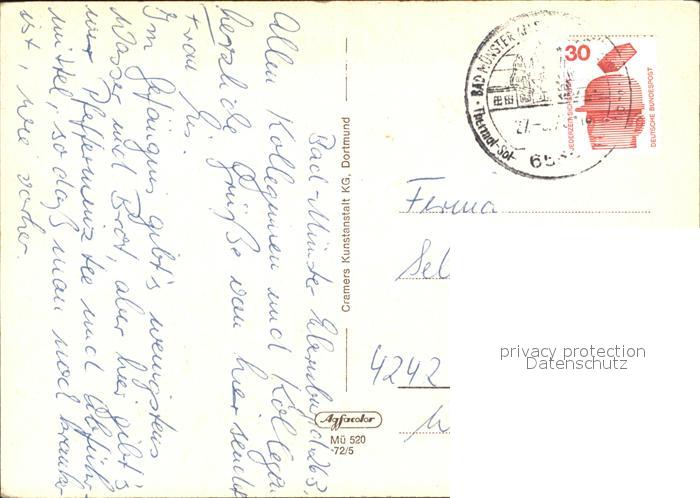 Bad-Münster Ebernburg, d. 26.3.
Allen Kolleginnen und Kollegen
herzliche Grüße von hier sendet
Frau
Im Gefängnis gibt's wenigstens
Wasser und Brot, aber hier gibt's
nur Pfefferminztee und Abführ-
mittel, so daß man noch kranker
ist, wie vorher.
Cramers Kunstanstalt KG, Dortmund
Agfacolor
Mü 520
-72/5
BAD MÜNSTER AM
Thermal-Sol-
27.
65
30
JEDERZEIT SICHERHEIT
DEUTSCHE BUNDESPOST
Firma
Sel
4242
privacy protection
Datenschutz